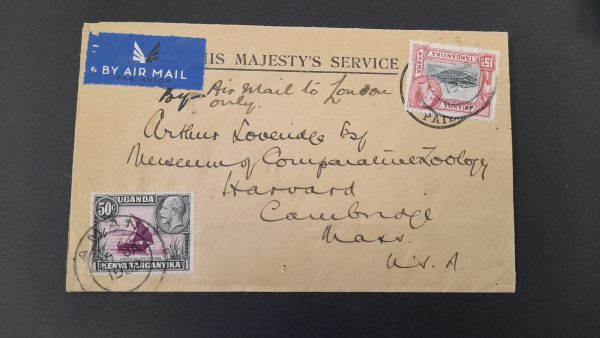 BY AIR MAIL
PAR AVION
HIS MAJESTY'S SERVICE
by Air Mail to London
only.
Arthur Loveridge Esq
Museum of Comparative Zoology
Harvard
Cambridge
Mass.
U.S.A.
TANGANYIKA
UGANDA
PAID
50c UGANDA
KENYA TANGANYIKA
AMANI